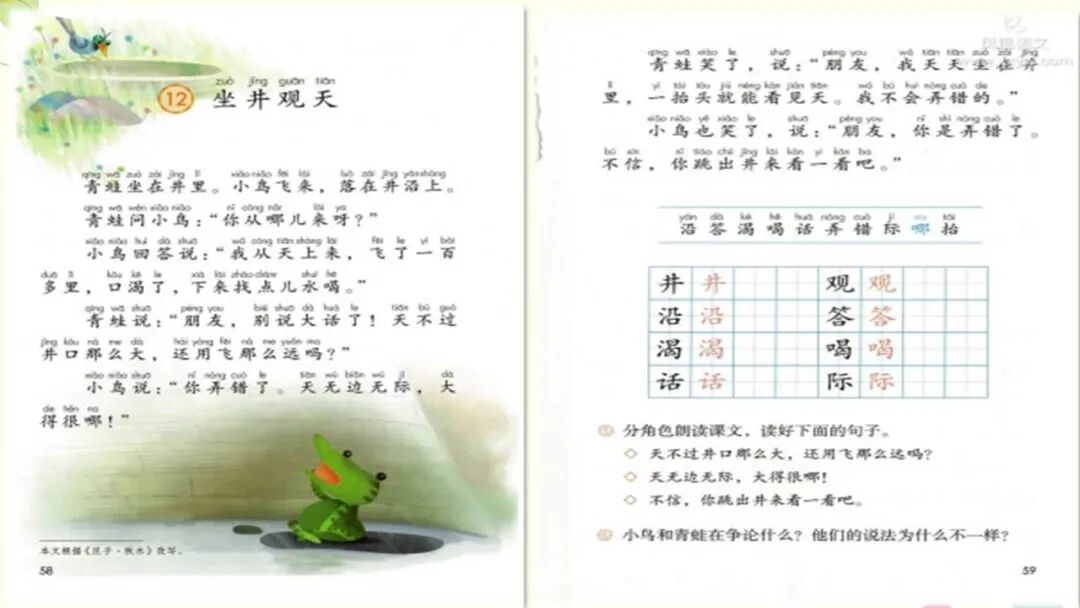 zuò jǐng guān tiān
12 坐井观天
qīng wā zuò zài jǐng lǐ xiǎo niǎo fēi lái luò zài jǐng yán shàng
青蛙坐在井里。小鸟飞来,落在井沿上。
qīng wā wèn xiǎo niǎo nǐ cóng nǎr lái ya
青蛙问小鸟:“你从哪儿来呀?”
xiǎo niǎo huí dá shuō wǒ cóng tiān shàng lái fēi le yì bǎi
小鸟回答说:“我从天上来,飞了一百
duō lǐ kǒu kě le xià lái zhǎo diǎnr shuǐ hē
多里,口渴了,下来找点儿水喝。”
qīng wā shuō péng you bié shuō dà huà le tiān bú guò
青蛙说:“朋友,别说大话了!天不过
jǐng kǒu nà me dà hái yòng fēi nà me yuǎn ma
井口那么大,还用飞那么远吗?”
xiǎo niǎo shuō nǐ nòng cuò le tiān wú biān wú jì dà
小鸟说:“你弄错了。天无边无际,大
de hěn na
得很哪!”
本文根据《庄子·秋水》改写。
58
qīng wā xiào le shuō péng you wǒ tiān tiān zuò zài jǐng
青蛙笑了,说:“朋友,我天天坐在井
lǐ yì tái tóu jiù néng kàn jiàn tiān wǒ bú huì nòng cuò de
里,一抬头就能看见天。我不会弄错的。”
xiǎo niǎo yě xiào le shuō péng you nǐ shì nòng cuò le
小鸟也笑了,说:“朋友,你是弄错了。
bú xìn nǐ tiào chū jǐng lái kàn yí kàn ba
不信,你跳出井来看一看吧。”
yán dá kě hē huà nòng cuò jì na tái
沿答渴喝话弄错际哪抬
井 井 观 观
沿 沿 答 答
渴 渴 喝 喝
话 话 际 际
分角色朗读课文,读好下面的句子。
◇ 天不过井口那么大,还用飞那么远吗?
◇ 天无边无际,大得很哪!
◇ 不信,你跳出井来看一看吧。
小鸟和青蛙在争论什么?他们的说法为什么不一样?
59